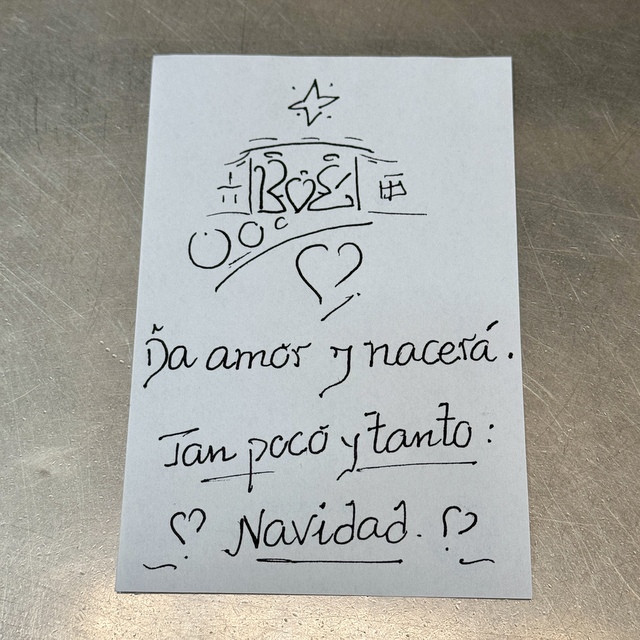 Da amor y nacerá.
Tan poco y tanto:
Navidad.